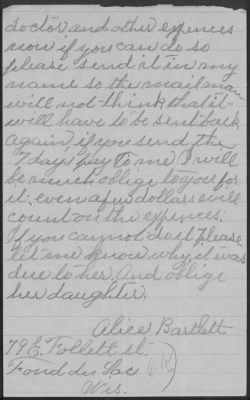 doctor and other expences
now if you can do so
please send it in my
name so the mail man
will not think that it
will have to be sent back
again, if you send the
7 days pay to me I will
be much oblige to you for
it, even a few dollars will
count on the expences.
If you cannot do it, Please
let me know why, it was
due to her. And oblige
her daughter.
Alice Bartlett
79 E. Follett st.
Fond du Lac
Wis.